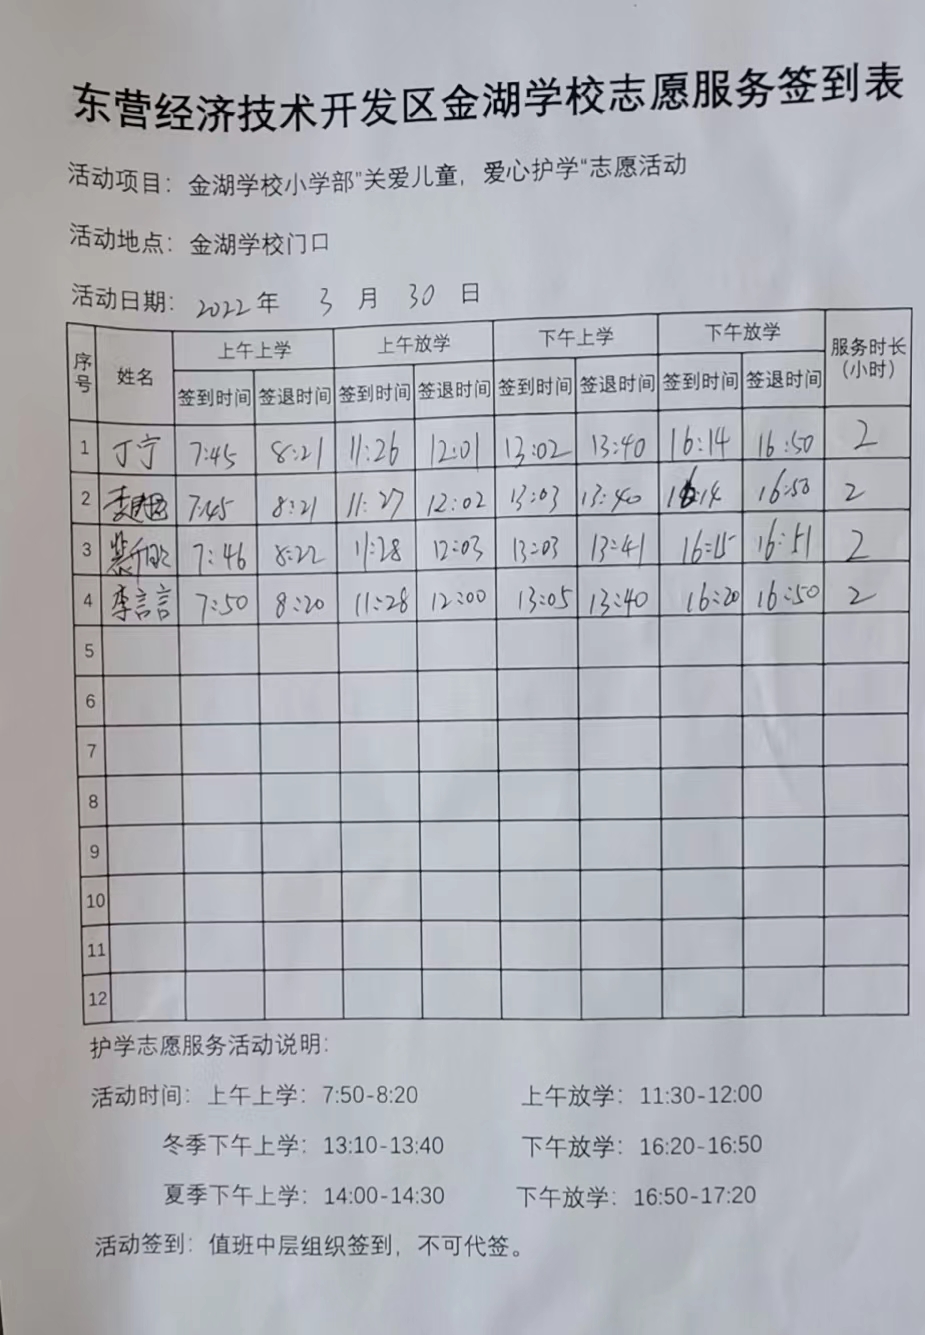 东营经济技术开发区金湖学校志愿服务签到表
活动项目：金湖学校小学部"关爱儿童，爱心护学"志愿活动
活动地点：金湖学校门口
活动日期：2022年 3 月 30 日
序号 姓名 上午上学 上午放学 下午上学 下午放学 服务时长（小时）
签到时间 签退时间 签到时间 签退时间 签到时间 签退时间 签到时间 签退时间
1 丁宁 7:45 8:21 11:26 12:01 13:02 13:40 16:14 16:50 2
2 7:45 8:21 11:27 12:02 13:03 13:40 16:14 16:50 2
3 7:46 8:22 11:28 12:03 13:03 13:41 16:15 16:51 2
4 李言言 7:50 8:20 11:28 12:00 13:05 13:40 16:20 16:50 2
5
6
7
8
9
10
11
12
护学志愿服务活动说明：
活动时间：上午上学：7:50-8:20 上午放学：11:30-12:00
冬季下午上学：13:10-13:40 下午放学：16:20-16:50
夏季下午上学：14:00-14:30 下午放学：16:50-17:20
活动签到：值班中层组织签到，不可代签。